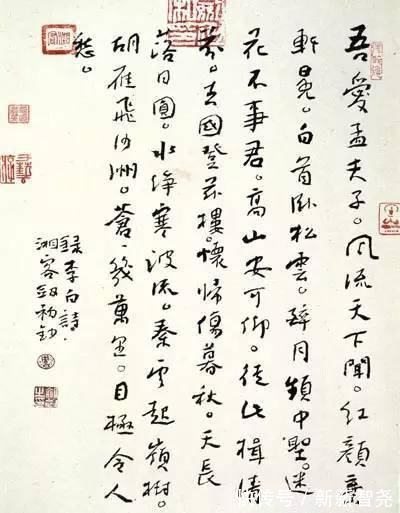 吾愛孟夫子。風流天下聞。紅顏棄
軒冕。白首卧松雲。醉月頻中聖。迷
花不事君。高山安可仰。徒此揖清
芬。去國登茲樓。懷歸傷暮秋。天長
落日圓。水淨寒波流。秦雲起嶺樹。
胡雁飛沙洲。蒼々幾萬里。目極令人
愁。
録李白詩.
湘客
快传号/新疆智尧